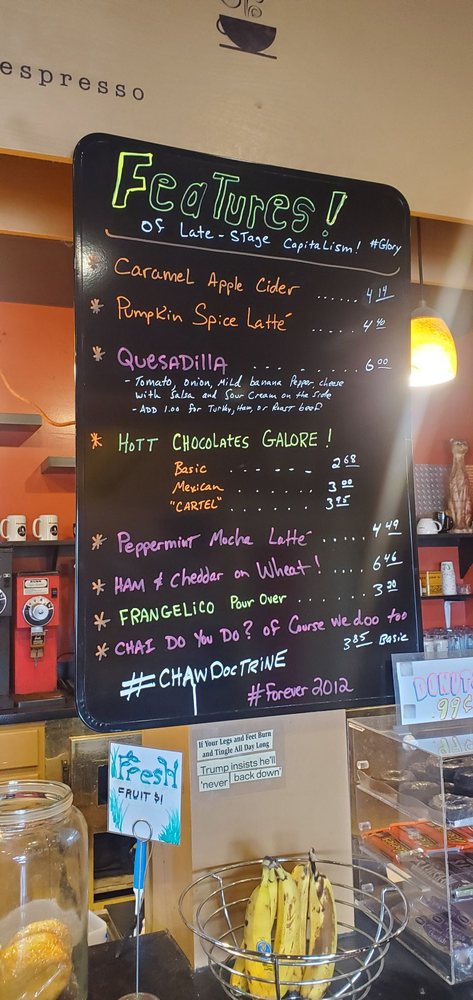 espresso
FeaTures!
Of Late-Stage Capitalism! #Glory
* Caramel Apple Cider ...... 4 19
* Pumpkin Spice Latté .... 4 40
* QuesaDilla . . . - . . . . . . 6 00
- Tomato, onion, mild banana Pepper cheese
with Salsa and Sour Cream on the side
- ADD 1.00 for Turky, Ham, or Roast beef
* HoTT CHOCOLATES GALORE!
Basic - . - - - . 2 68
Mexican . . . . . . 3 00
"CARTEL" . . . . . . 3 95
* Peppermint Mocha Latté ..... 4 49
* HAM & Cheddar on Wheat! .... 6 46
* FRANGELICO Pour Over ........ 3 20
* CHAI DO YOU DO? of Course we doo too
3 85 Basic
#CHAWDOCTRINE
#Forever 2012
DONUTS
99¢
If Your Legs and Feet Burn
and Tingle All Day Long
Trump insists he'll
'never back down'
Fresh
FRUIT $1